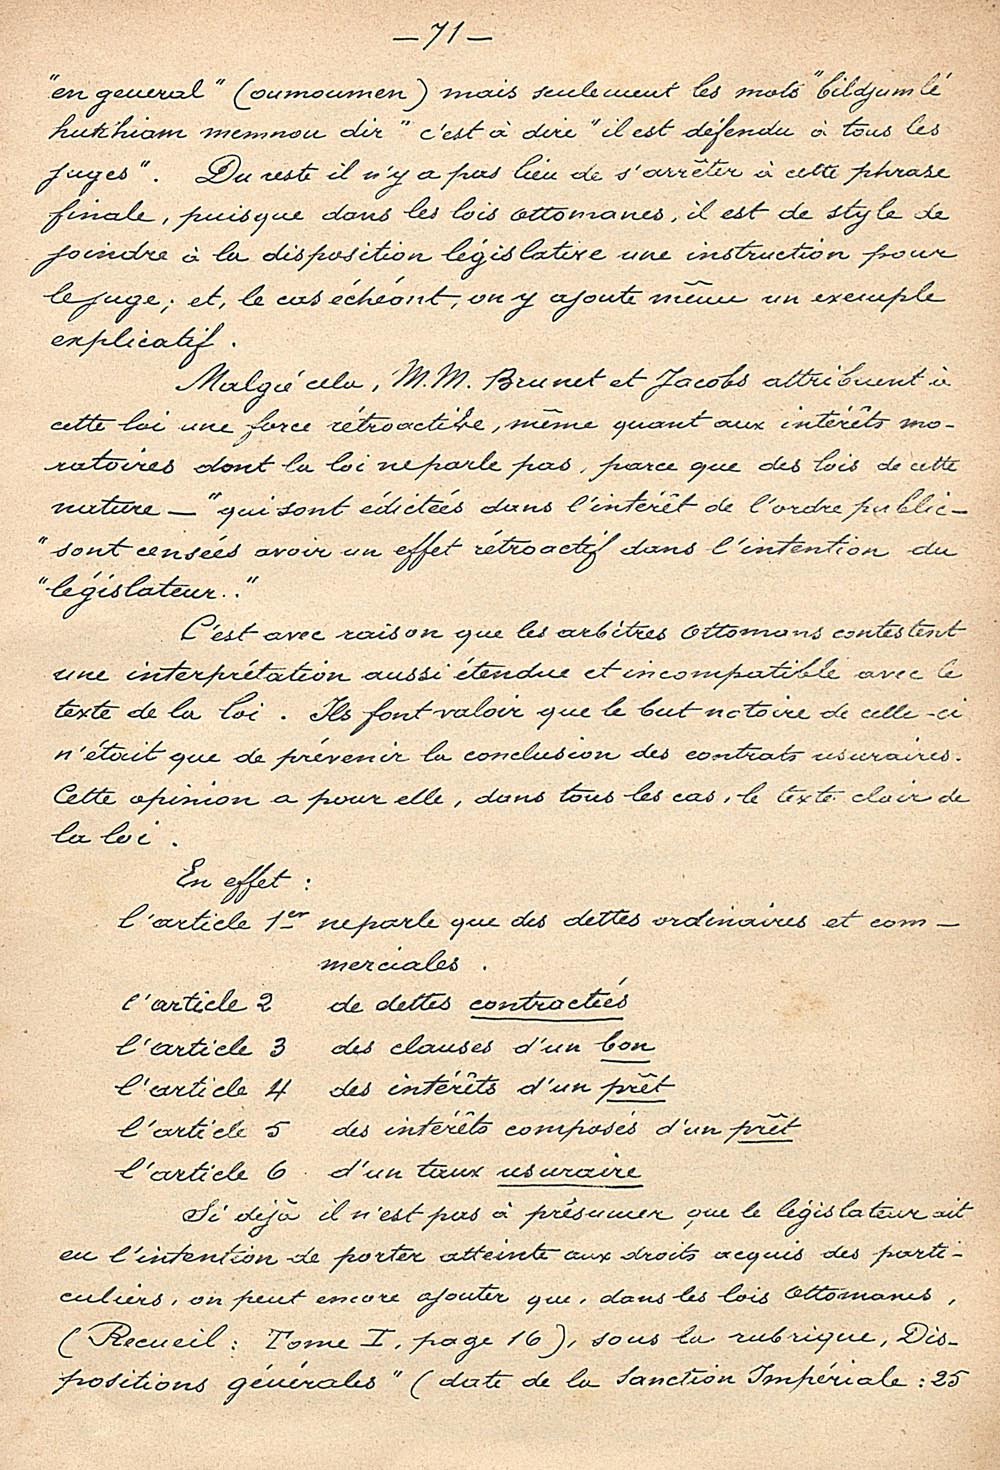 — 71 —
"en general" (oumoumen) mais seulement les mots "bildjumlé
hukhiam memnou dir" c'est à dire "il est défendu à tous les
juges". Du reste il n'y a pas lieu de s'arrêter à cette phrase
finale, puisque dans les lois ottomanes, il est de style de
joindre à la disposition législative une instruction pour
le juge; et, le cas échéant, on y ajoute même un exemple
explicatif.
Malgré cela, M.M. Brunet et Jacobs attribuent à
cette loi une force rétroactive, même quant aux intérêts mo-
ratoires dont la loi ne parle pas, parce que des lois de cette
nature — "qui sont édictées dans l'intérêt de l'ordre public —
"sont censées avoir un effet rétroactif dans l'intention du
"législateur.."
C'est avec raison que les arbitres Ottomans contestent
une interprétation aussi étendue et incompatible avec le
texte de la loi. Ils font valoir que le but notoire de celle-ci
n'était que de prévenir la conclusion des contrats usuraires.
Cette opinion a pour elle, dans tous les cas, le texte clair de
la loi.
En effet :
l'article 1er ne parle que des dettes ordinaires et com-
merciales.
l'article 2 de dettes contractées
l'article 3 des clauses d'un bon
l'article 4 des intérêts d'un prêt
l'article 5 des intérêts composés d'un prêt
l'article 6 d'un taux usuraire
Si déjà il n'est pas à présumer que le législateur ait
eu l'intention de porter atteinte aux droits acquis des parti-
culiers, on peut encore ajouter que, dans les lois Ottomanes,
(Recueil : Tome I, page 16), sous la rubrique, Dis-
positions générales" (date de la Sanction Impériale : 25